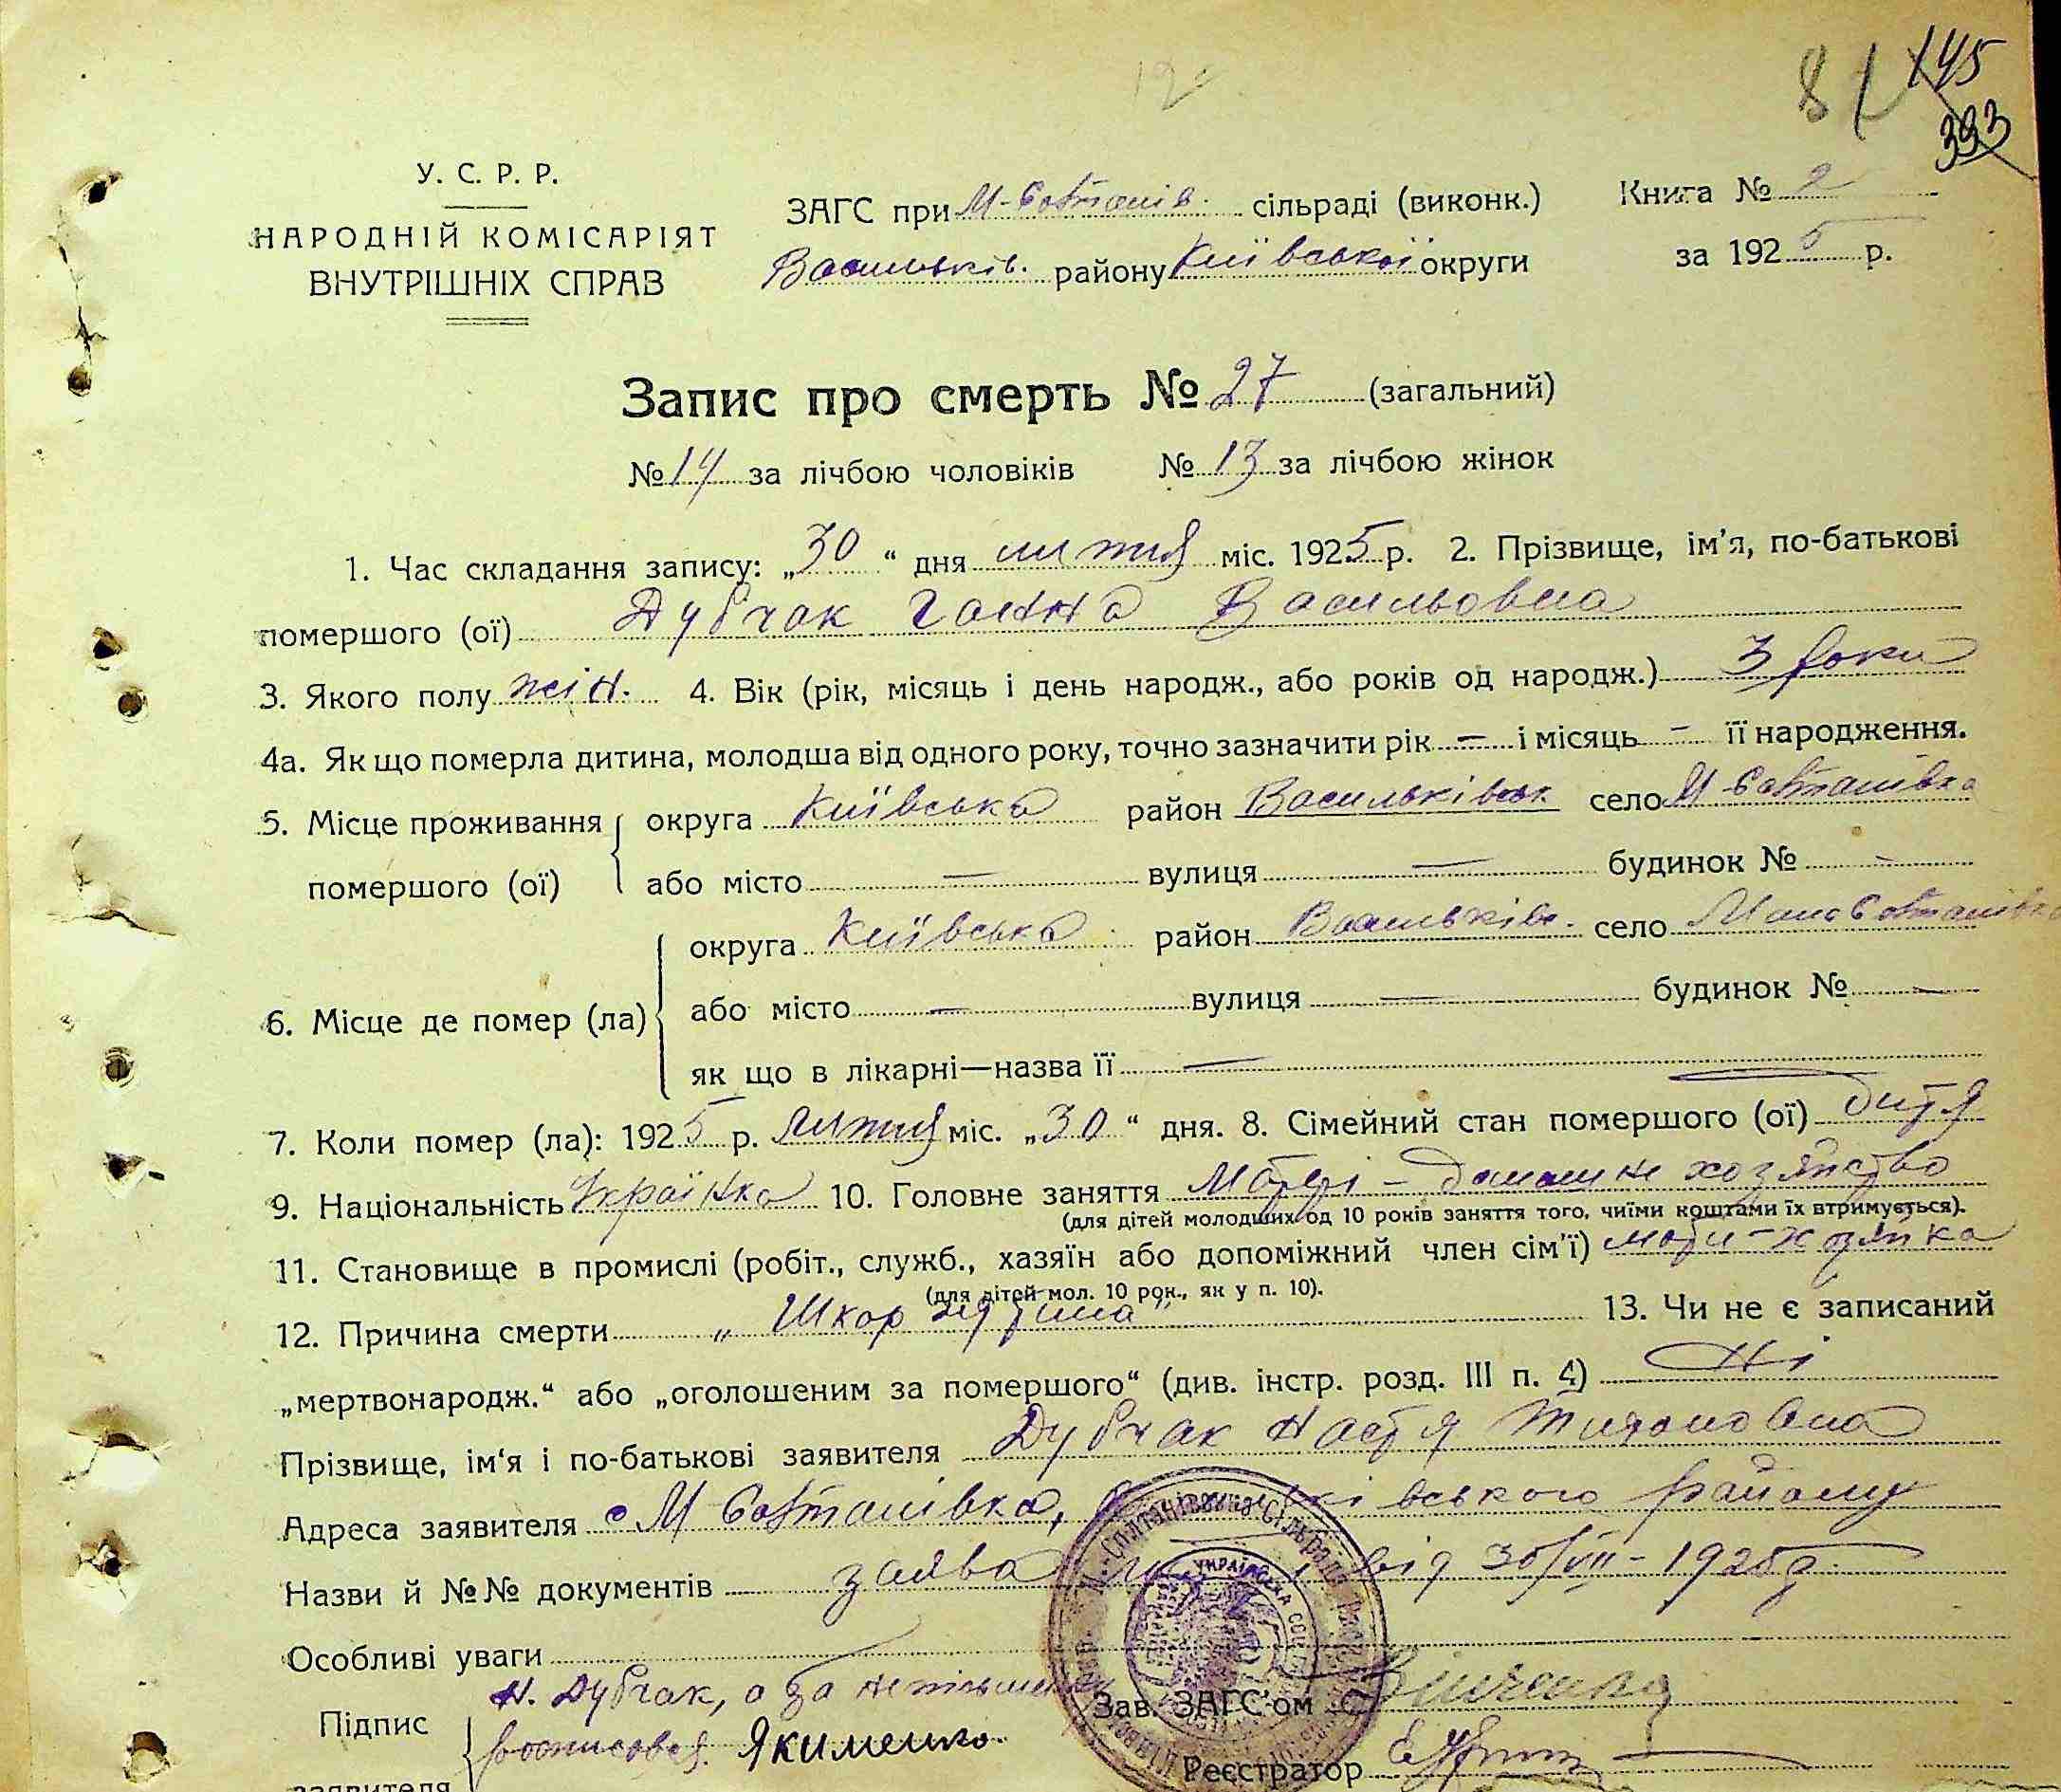 12
81 145
393
У. С. Р. Р.
НАРОДНІЙ КОМІСАРІЯТ
ВНУТРІШНІХ СПРАВ
ЗАГС при М-Солтанів. сільраді (виконк.)
Васильків. району Київської округи
Книга № 2
за 1925 р.
Запис про смерть № 27 (загальний)
№ 14 за лічбою чоловіків № 13 за лічбою жінок
1. Час складання запису: „30“ дня липня міс. 1925 р. 2. Прізвище, ім’я, по-батькові
помершого (ої) Дубчак Ганна Васильовна
3. Якого полу жін. 4. Вік (рік, місяць і день народж., або років од народж.) 3 роки
4а. Як що померла дитина, молодша від одного року, точно зазначити рік — і місяць — її народження.
5. Місце проживання помершого (ої) округа Київська район Васильківськ. село М Солтанівка
або місто — вулиця — будинок № -
6. Місце де помер (ла) округа Київська район Васильків. село Мало Солтанівка
або місто — вулиця — будинок № —
як що в лікарні—назва її —
7. Коли помер (ла): 1925 р. липня міс. „30“ дня. 8. Сімейний стан помершого (ої) дитя
9. Національність Українка 10. Головне заняття Матері - домашнє хозяйство
(для дітей молодших од 10 років заняття того, чиїми коштами їх втримується).
11. Становище в промислі (робіт., служб., хазяїн або допоміжний член сім’ї) мати-хозяйка
(для дітей мол. 10 рок., як у п. 10).
12. Причина смерти „Шкарлятина“ 13. Чи не є записаний
„мертвонародж.“ або „оголошеним за помершого“ (див. інстр. розд. III п. 4) Ні
Прізвище, ім‘я і по-батькові заявителя Дубчак Настя
Адреса заявителя с М Солтанівка, Васильківського району
Назви й №№ документів заява від 30/VII-1925 р.
Особливі уваги
Підпис
заявителя
Н. Дубчак, а за неписьменну
росписався Якименко.
Зав. ЗАГС’ом
Реєстратор